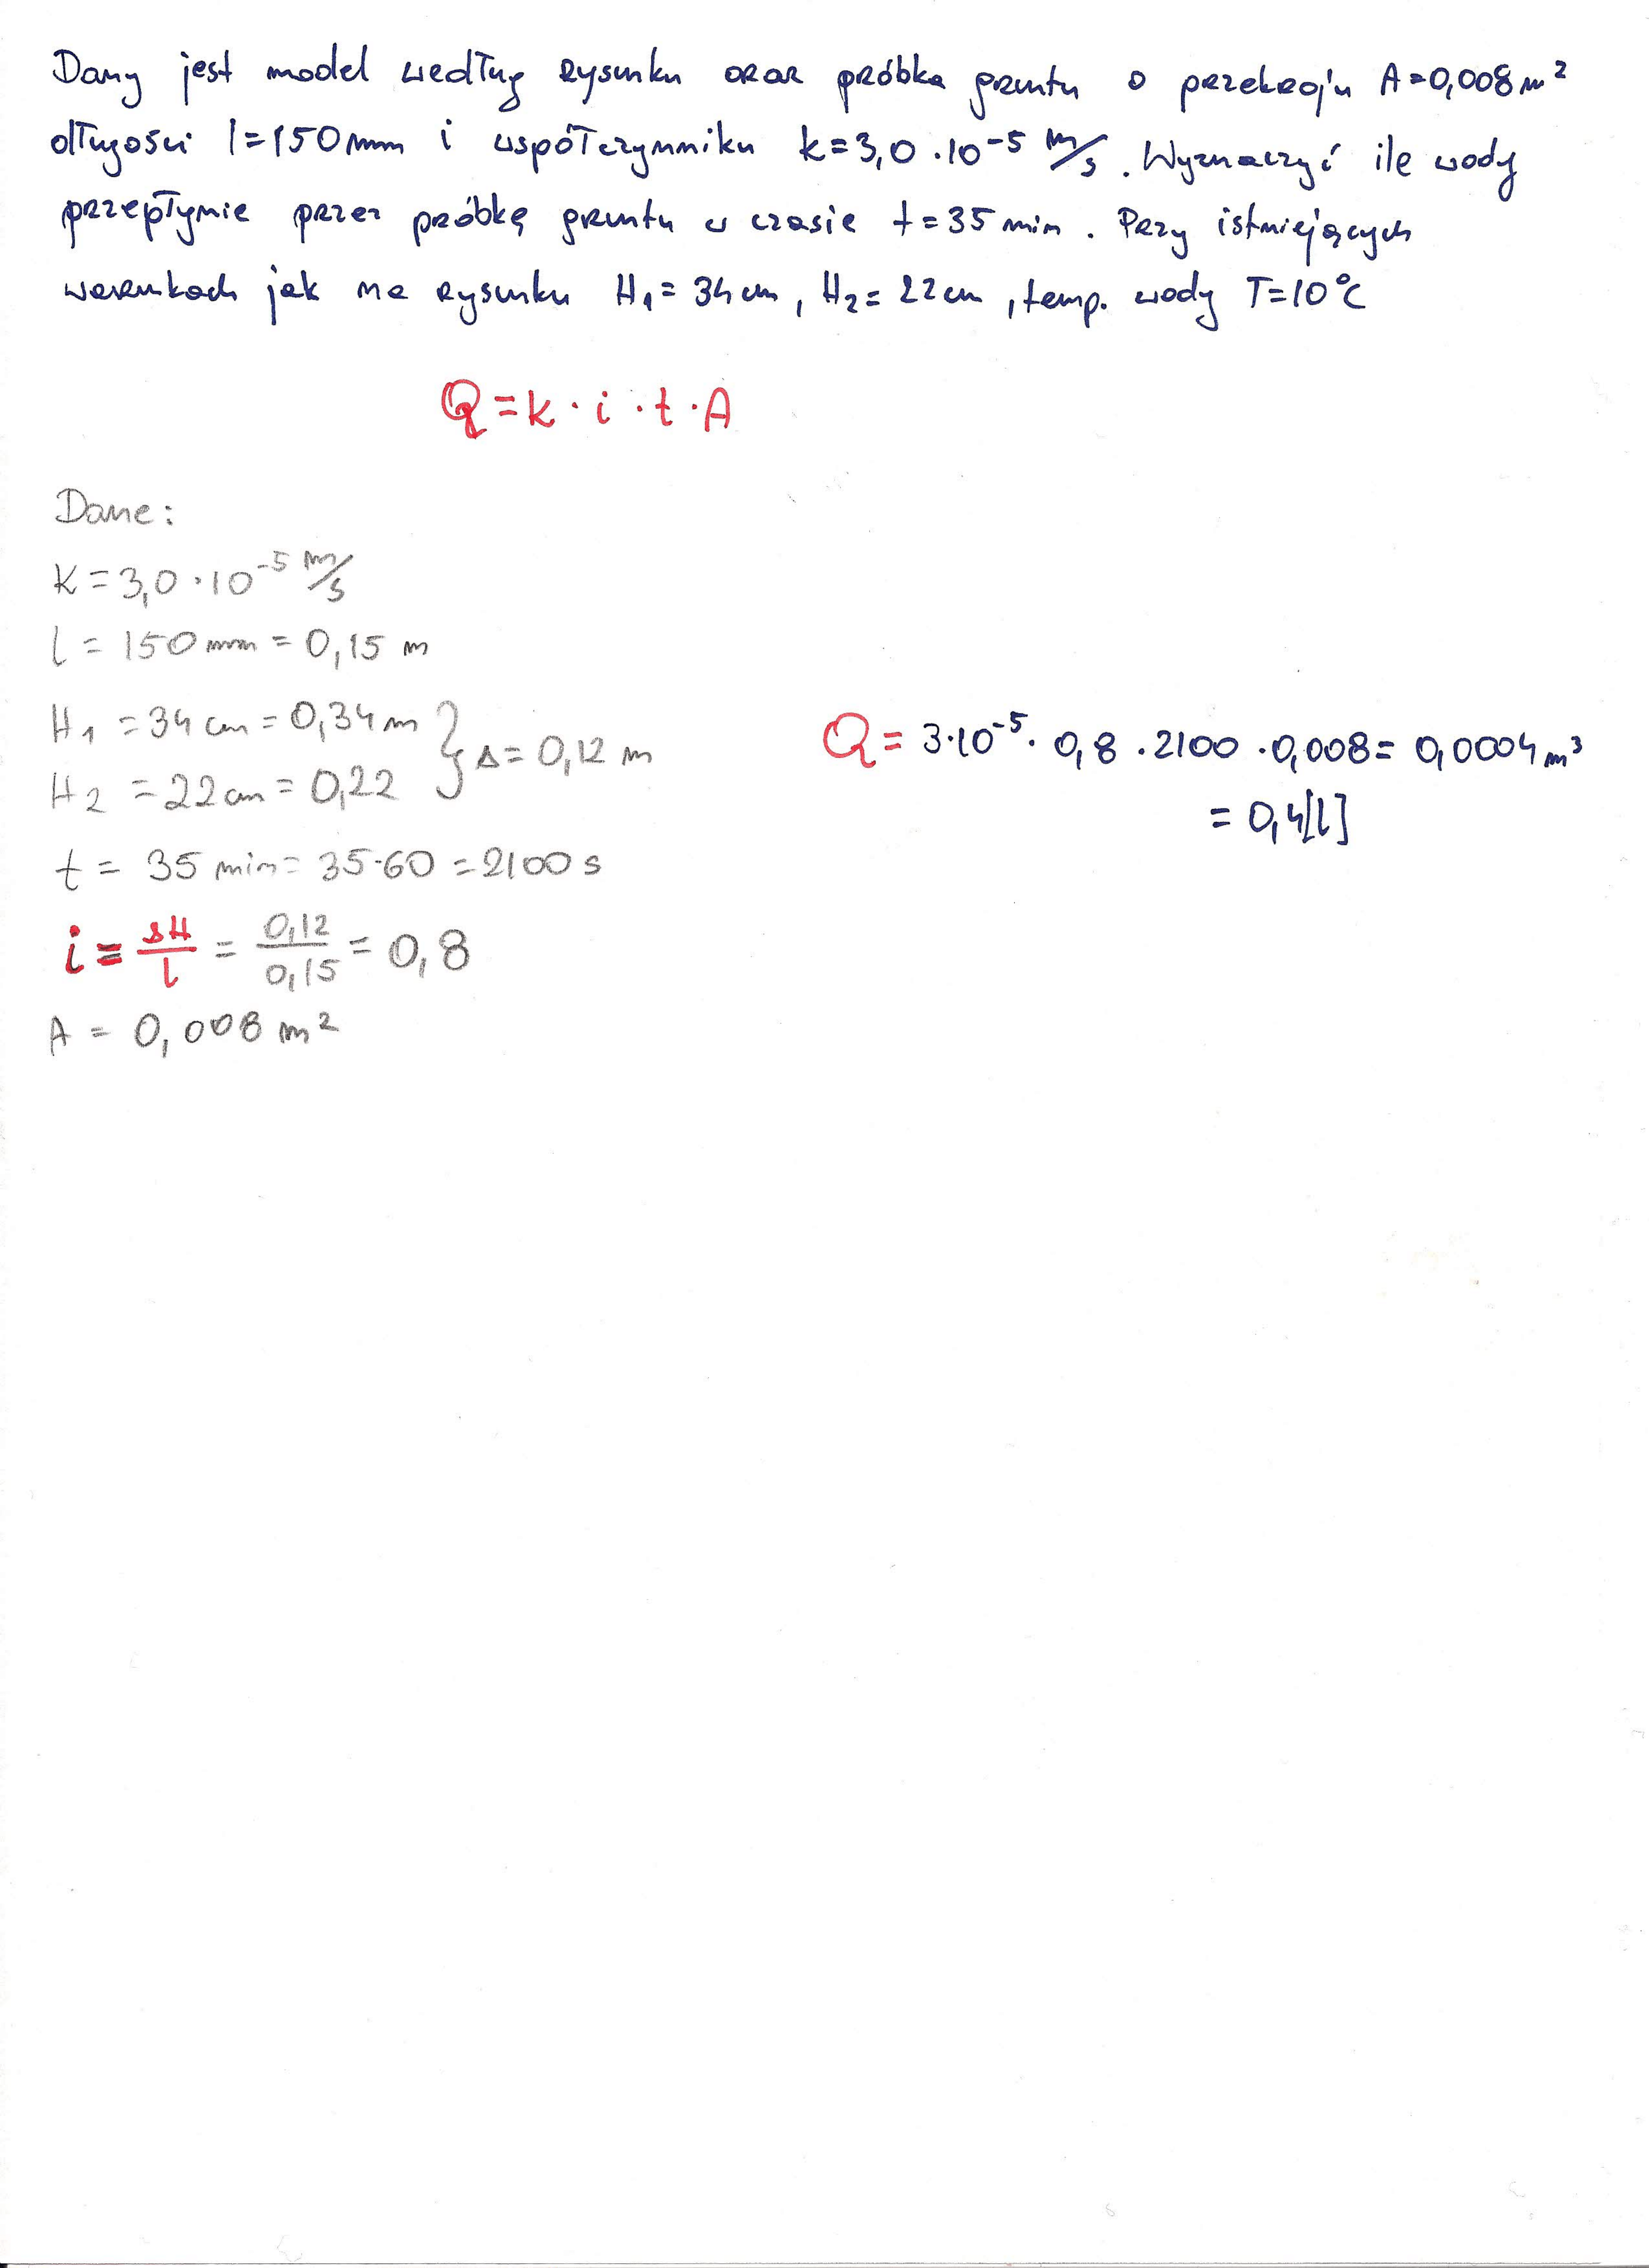 Dany jest model według rysunku oraz próbka gruntu o przekroju A=0,008 m²
długości l=150mm i współczynniku k=3,0·10⁻⁵ m/s. Wyznaczyć ile wody
przepłynie przez próbkę gruntu w czasie t=35 min. Przy istniejących
warunkach jak na rysunku H₁= 34 cm, H₂= 22 cm, temp. wody T=10°C
Q=k·i·t·A
Dane:
k=3,0·10⁻⁵ m/s
l = 150 mm = 0,15 m
H₁ = 34 cm = 0,34 m
H₂ = 22 cm = 0,22 } Δ= 0,12 m
t = 35 min= 35·60 =2100 s
i = ΔH/l = 0,12/0,15 = 0,8
A = 0,008 m²
Q= 3·10⁻⁵· 0,8 · 2100 · 0,008= 0,0004 m³
= 0,4[l]